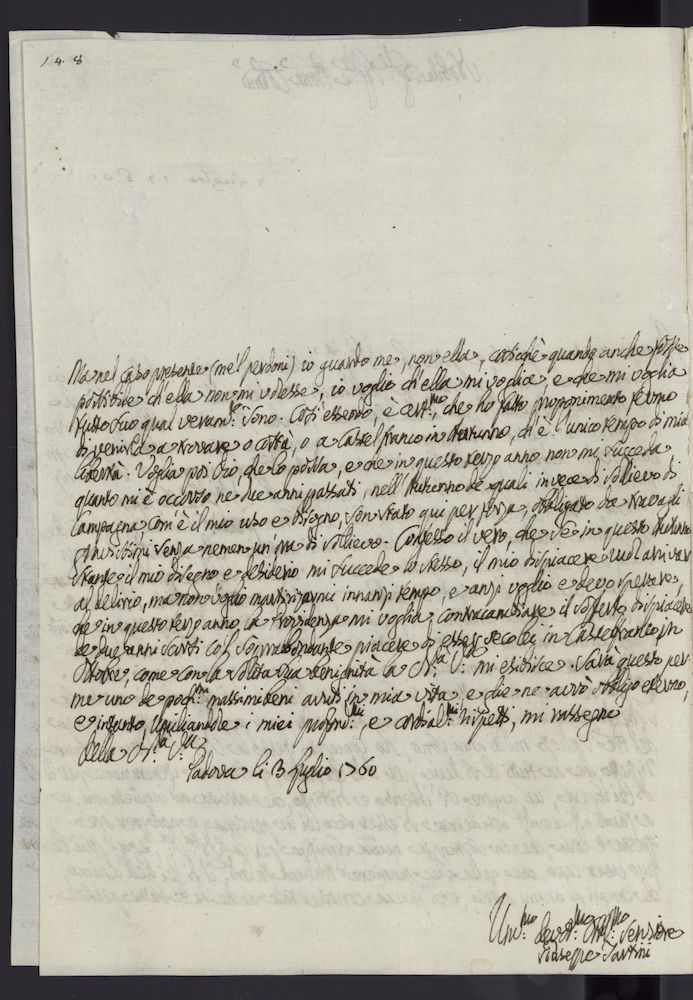 148
Ma nel caso presente (me'l perdoni) io guardo me, non ella, cosicchè quando anche fosse
possibile ch'ella non mi volesse, io voglio ch'ella mi voglia, e che mi voglia
tutto suo qual veram.te sono. Così essendo, è cert.mo, che ho fatto proponimento fermo
di venirla a trovare o costà, o a Castelfranco in Autunno, ch'è l'unico tempo di mia
libertà. Voglia poi Dio, che lo possa, e che in questo terzo anno non mi succeda
quanto mi è occorso ne due anni passati, nell'Autunno de quali invece di sollievo di
Campagna com'è il mio uso e bisogno, son stato qui per forza, obbligato da travagli
gravissimi senza nemen un'ora di sollievo. Confesso il vero, che se in questo Autunno
stante il mio bisogno e desiderio mi succede lo stesso, il mio dispiacere vuol arrivar
al delirio, ma non voglio martirizarmi innanzi tempo, e anzi voglio e devo sperare,
che in questo terzo anno la Providenza mi voglia contracambiare il sofferto dispiacere
de due anni scorsi col sovrabbondante piacere di esser seco lei in Castelfranco in
Ottobre, come con la solita sua benignità la N.ra V.ra mi esibisce. Sarà questo per
me uno de poch.mi massimi beni avuti in mia vita, e gliene avrò obbligo eterno,
e intanto umiliandole i miei profond.mi, e cordial.mi rispetti, mi rassegno
della N.ra V.ra
Padova li 3 Luglio 1760
Um.mo Devot.mo Obbl.mo Servitore
Giuseppe Tartini